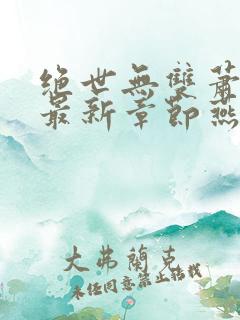 絕世無雙蕭
最新章節燕
大弗蘭克
未經同意禁止轉載